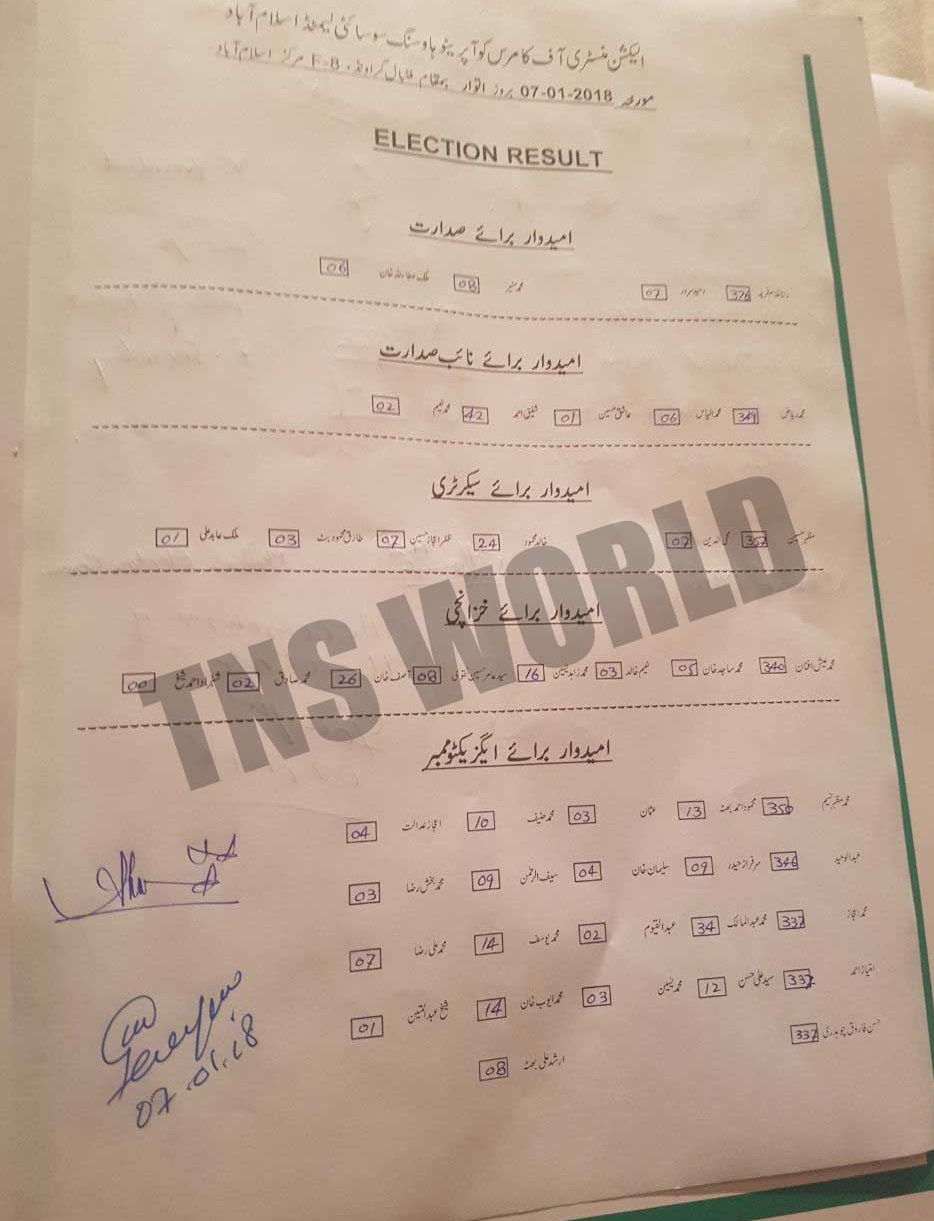 الیکشن منسٹری آف کامرس کوآپریٹو ہاوسنگ سوسائٹی لیمٹڈ اسلام آباد
مورخہ 07-01-2018 بروز اتوار بمقام فٹبال گراونڈ، F-8 مرکز اسلام آباد
ELECTION RESULT
امیدوار برائے صدارت
رانا غلام فرید 376 07 محمد منیر 08 ملک عطاء اللہ خان 06
امیدوار برائے نائب صدارت
محمد ریاض 349 محمد الیاس 06 عاشق حسین 01 شفیق احمد 42 محمد نعیم 02
امیدوار برائے سیکرٹری
مظہر حسین 352 محی الدین 07 خالد محمود 24 ظفر اعجاز حسین 07 طارق محمود بٹ 03 ملک عابد علی 01
امیدوار برائے خزانچی
340 محمد ساجد خان 05 نعیم خالد 03 محمد زاہد یٰسین 16 سید عامر حسین نقوی 08 آصف خان 26 محمد صادق 02 شہزاد احمد شیخ 00
TNS WORLD
امیدوار برائے ایگزیکٹو ممبر
محمد مظہر نسیم 350 محمود احمد بھٹہ 13 عثمان 03 محمد حنیف 10 اعجاز عدالت 04
عبدالوحید 346 سرفراز حیدر 09 سلیمان خان 04 سیف الرحمٰن 09 محمد بخش رضا 03
محمد اعجاز 337 محمد عبدالمالک 34 عبدالقیوم 02 محمد یوسف 14 محمد علی رضا 07
امتیاز احمد 337 سید علی حسن 12 محمد یٰسین 03 محمد ایوب خان 14 شیخ عبدالمتین 01
حسن فاروق چوہدری 337 ارشد علی بھٹہ 08
07.01.18